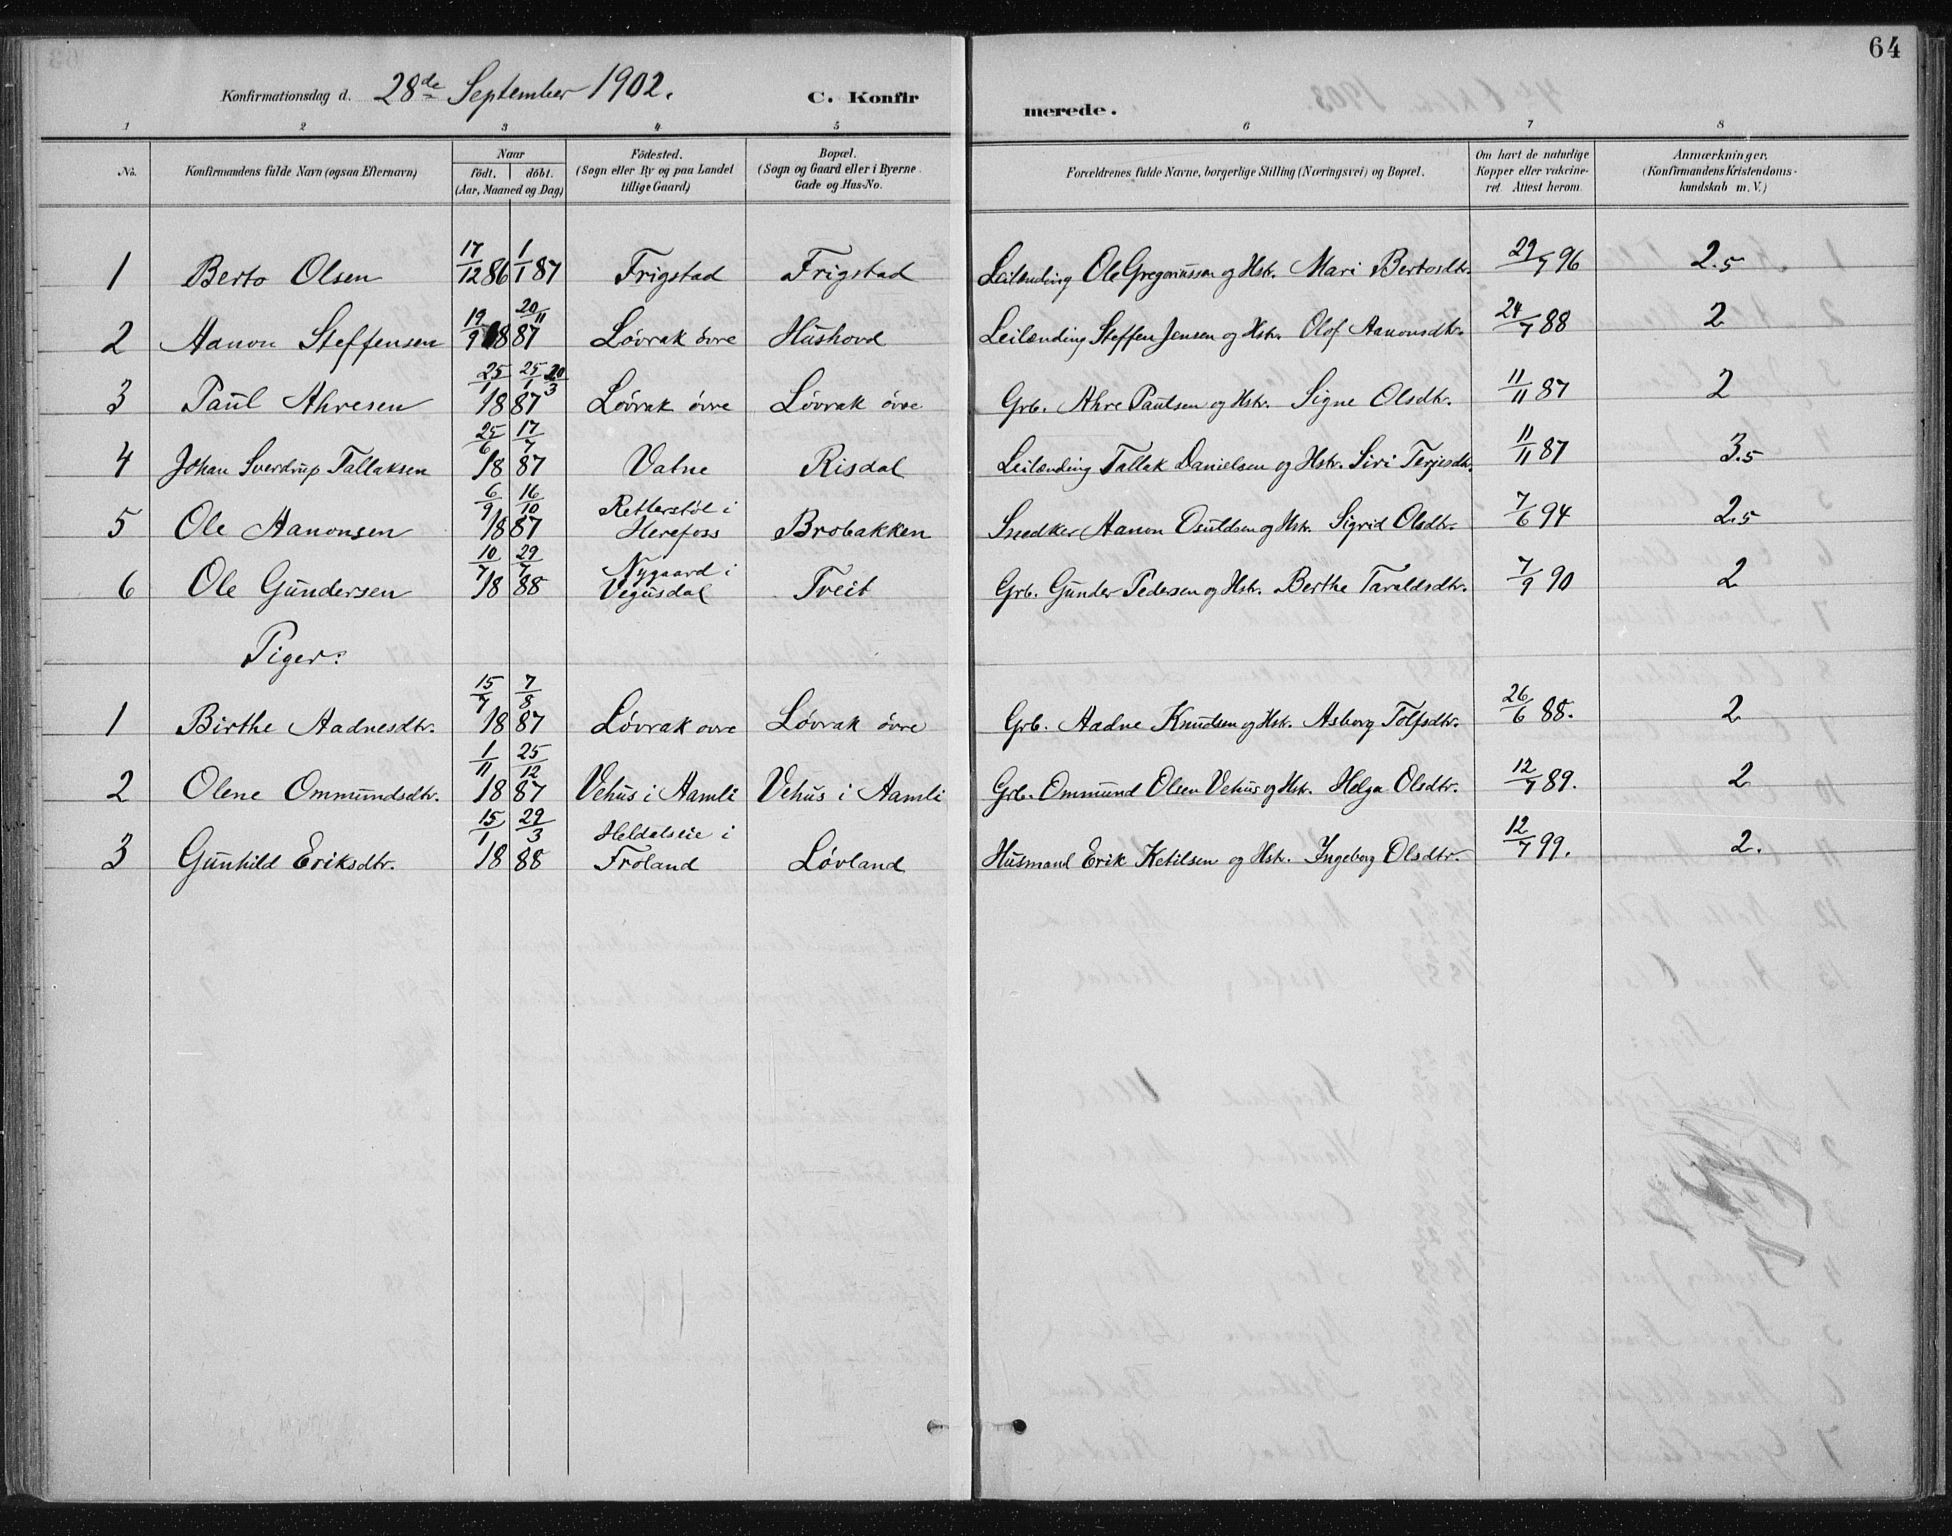 64
Konfirmationsdag d. 28de September 1902. C. Konfirmerede.
1 2 3 4 5 6 7 8
No. Konfirmandens fulde Navn (ogsaa Efternavn) Naar født. døbt. (Aar, Maaned og Dag) Fødested. (Sogn eller By og paa Landet tillige Gaard) Bopæl. (Sogn og Gaard eller i Byerne Gade og Hus-No. Forældrenes fulde Navne, borgerlige Stilling (Næringsvei) og Bopæl. Om havt de naturlige Kopper eller vakcineret. Attest herom. Anmærkninger, (Konfirmandens Kristendomskundskab m. V.)
1 Berto Olsen 17/12 86 1/1 87 Frigstad Frigstad Leilænding Ole Gregoriussen og Hstr. Mari Bertosdtr. 29/7 96 2.5
2 Aanon Steffensen 19/9 18 20/11 87 Løvrak øvre Hushovd Leilænding Steffen Jensen og Hstr. Olof Aanonsdtr. 24/7 88 2
3 Paul Ahresen 25/1 18 25/1 20/3 87 Løvrak øvre Løvrak øvre Grb. Ahre Paulsen og Hstr. Signe Olsdtr. 11/11 87 2
4 Johan Sverdrup Tallaksen 25/6 18 17/7 87 Vatne Risdal Leilænding Tallak Danielsen og Hstr. Siri Terjesdtr. 11/11 87 3.5
5 Ole Aanonsen 6/9 18 16/10 87 Retterstøl i Herefoss Brobakken Snedker Aanon Osuldsen og Hstr. Sigrid Olsdtr. 7/6 94 2.5
6 Ole Gundersen 10/7 18 29/7 88 Nygaard i Vegusdal Tveit Grb. Gunder Pedersen og Hstr. Berthe Taraldsdtr. 7/9 90 2
Piger:
1 Birthe Aadnesdtr. 15/7 18 7/8 87 Løvrak ovre Løvrak øvre Grb. Aadne Knudsen og Hstr. Asborg Tolfsdtr. 26/6 88. 2
2 Olene Ommundsdtr. 1/11 18 25/12 87 Vehus i Aamli Vehus i Aamli Grb. Ommund Olsen Vehus og Hstr. Helga Olsdtr. 12/7 89. 2
3 Gunhild Eriksdtr. 15/1 18 29/3 88 Heldalseie i Froland Løvland Husmand Erik Ketilsen og Hstr. Ingeborg Olsdtr. 12/7 99. 2.